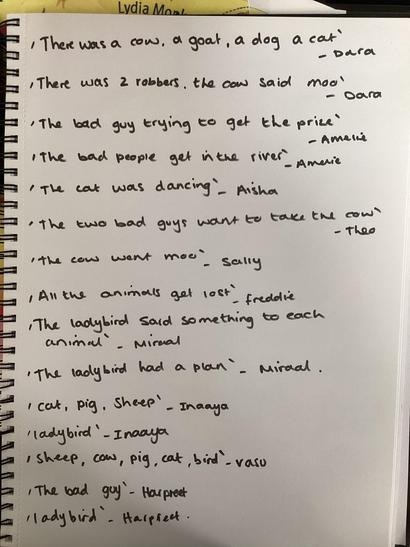 Lydia Monk
'There was a cow, a goat, a dog a cat'
- Dara
'There was 2 robbers. the cow said moo'
- Dara
'The bad guy trying to get the prize'
- Amelie
'The bad people get in the river' - Amelie
'The cat was dancing' - Aisha
'The two bad guys want to take the cow'
- Theo
'The cow went moo' - Sally
'All the animals get lost' - freddie
'The ladybird said something to each
animal' - Miraal
'The ladybird had a plan' - Miraal.
'cat, pig, Sheep' - Inaaya
'ladybird' - Inaaya
'sheep, cow, pig, cat, bird' - vasu
'The bad guy' - Harpreet
'ladybird' - Harpreet.